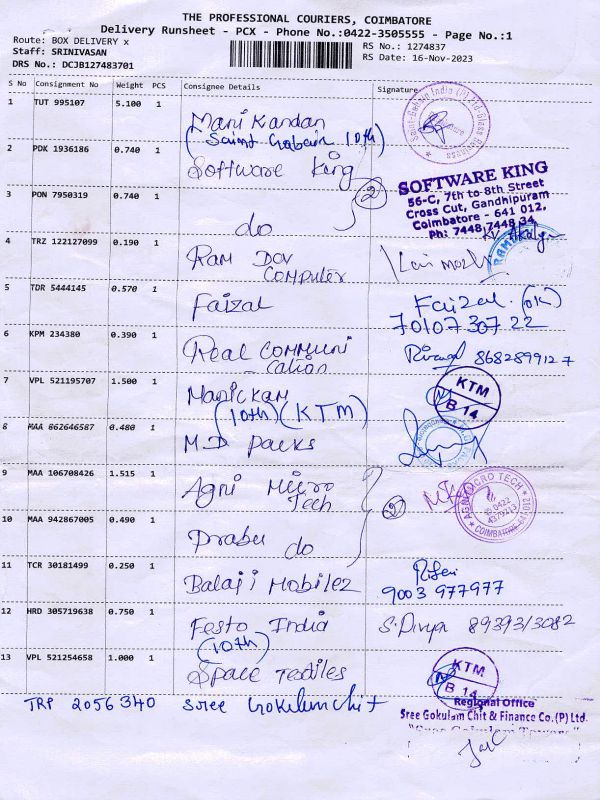 THE PROFESSIONAL COURIERS, COIMBATORE
Delivery Runsheet - PCX - Phone No.:0422-3505555 - Page No.:1
Route: BOX DELIVERY x
Staff: SRINIVASAN
DRS No.: DCJB127483701
RS No.: 1274837
RS Date: 16-Nov-2023
S No Consignment No Weight PCS Consignee Details Signature
1 TUT 995107 5.100 1 Mani Kandan
(Saint Gobain 10th)
2 PDK 1936186 0.740 1 Software King
SOFTWARE KING
56-C, 7th to 8th Street
Cross Cut, Gandhipuram
Coimbatore - 641 012.
Ph: 7448 7448 34
3 PON 7950319 0.740 1 do
2
4 TRZ 122127099 0.190 1 Ram Dov
Computer
5 TDR 5444145 0.570 1 Faizal
Faizal (OK)
70107 307 22
6 KPM 234380 0.390 1 Real Communi
cation
8682899127
7 VPL 521195707 1.500 1 Manickam
(10th) (KTM)
KTM
B 14
8 MAA 862646587 0.480 1 M.D Packs
9 MAA 106708426 1.515 1 Agni Micro
Tech
2
AGNI MICRO TECH
0422
4379213
COIMBATORE-641 012
10 MAA 942867005 0.490 1 Prabu do
11 TCR 30181499 0.250 1 Balaji Mobilez
9003 977977
12 HRD 305719638 0.750 1 Festo India
(10th)
S. Divya 89393/3082
13 VPL 521254658 1.000 1 Space Textiles
KTM
B 14
TRP 2056340 Sree Gokulam Chit
Regional Office
Sree Gokulam Chit & Finance Co.(P) Ltd.
"Sree Gokulam Towers"